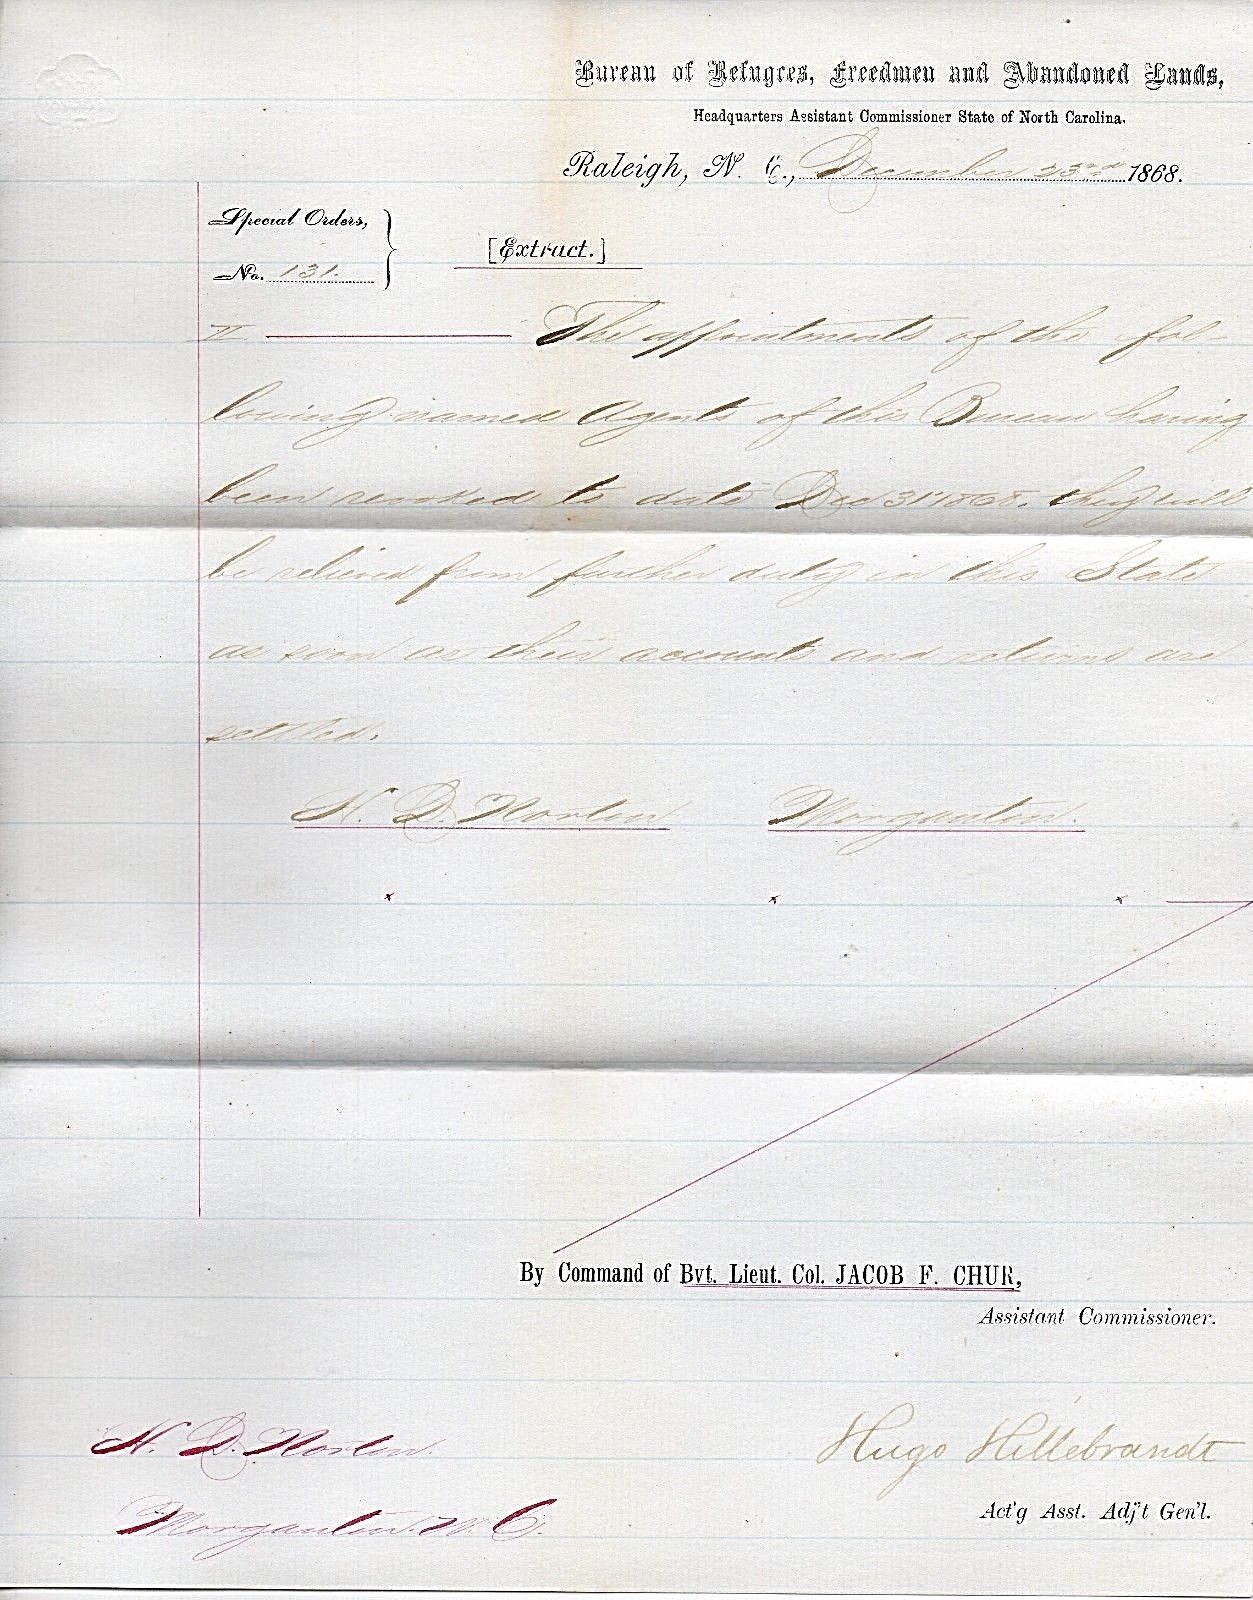 Bureau of Refugees, Freedmen and Abandoned Lands,
Headquarters Assistant Commissioner State of North Carolina.
Raleigh, N. C., December 23rd 1868.
Special Orders,
No. 131.
[Extract.]
II. The appointments of the fol-
lowing named Agents of this Bureau having
been revoked to date Dec 31st 1868. they will
be relieved from further duty in this State
as soon as their accounts and returns are
settled.
N. D. Norton Morganton.
x x x
By Command of Bvt. Lieut. Col. JACOB F. CHUR,
Assistant Commissioner.
N. D. Norton.
Hugo Hillebrandt
Morganton. N. C.
Act'g Asst. Adj't Gen'l.